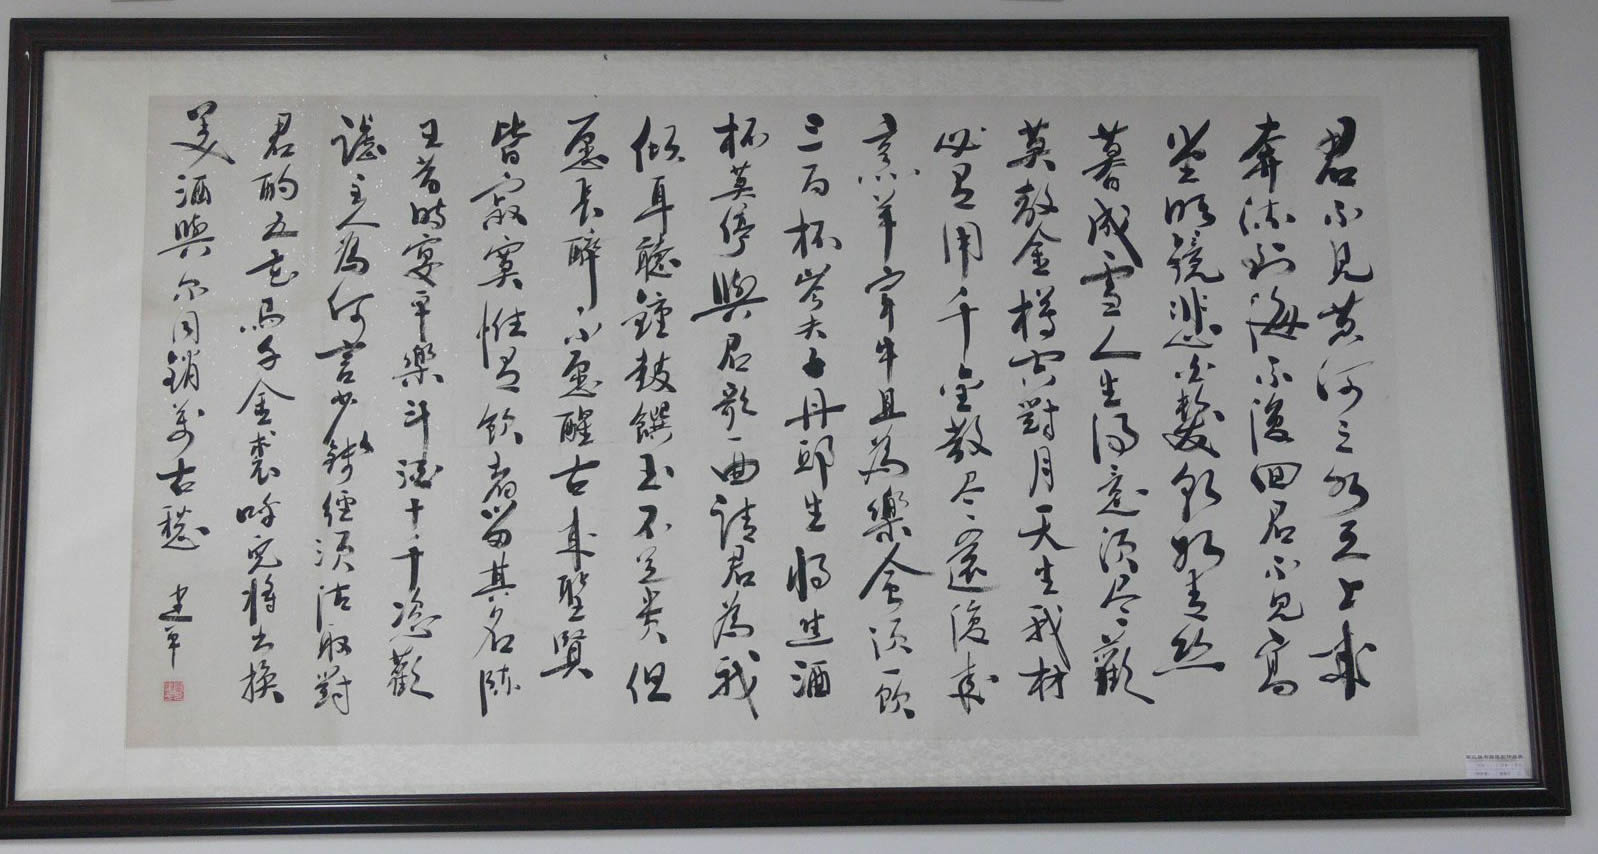 君不見黃河之水天上來
奔流到海不復回君不見高
堂明鏡悲白髮朝如青絲
暮成雪人生得意須尽歡
莫教金樽空對月天生我材
必有用千金散尽還復來
烹羊宰牛且為樂會須一飲
三百杯岑夫子丹邱生將進酒
杯莫停與君歌一曲請君為我
傾耳聽鐘鼓饌玉不足貴但
愿長醉不愿醒古來聖賢
皆寂寞惟有飲者留其名陳
王昔時宴平樂斗酒十千恣歡
謔主人為何言少錢徑須沽取對
君酌五花馬千金裘呼兒將出換
美酒與尔同銷萬古愁